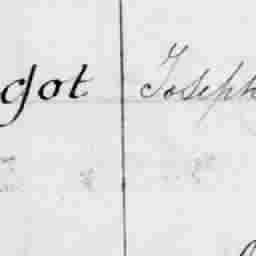 got Joseph